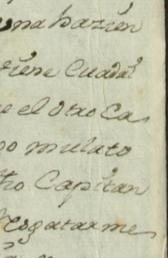 una hazien
tiene Cuadal
e el otro Ca
po mulato
tro Capitan
Resgatarme